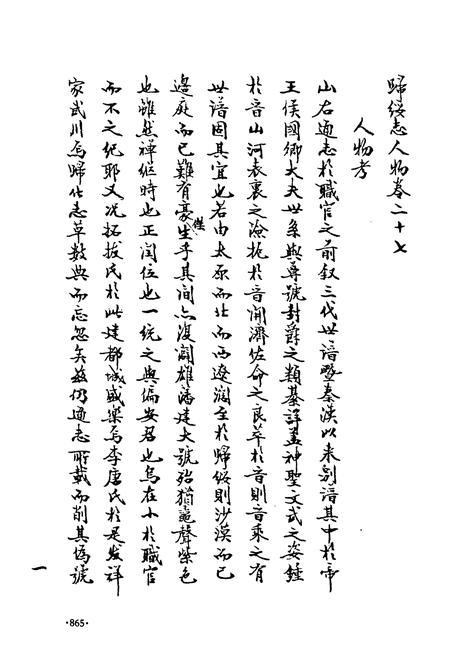 歸綏志人物卷二十七
人物考
山右通志於職官之前叙三代世譜暨秦漢以来別譜其中於帝
王侯國卿大夫世系與尊號封爵之類綦詳蓋神聖文武之姿鍾
於晉山河表裏之險扼於晉開濟佐命之良萃於晉則晉乘之有
世譜固其宜也若由太原而北而西遼濶至於歸綏則沙漠而已
邊庭而已難有豪傑生乎其間亦復闢雄藩建大號殆猶鼃聲紫色
也雖然禅继時也正閏位也一統之與偏安君也烏在小於職官
而不之纪耶又况拓拔氏於此建都城盛樂焉李唐氏於是发祥
家武川焉歸化志草数典而忘忽矣兹仍通志所載而削其僞號
一
·865·